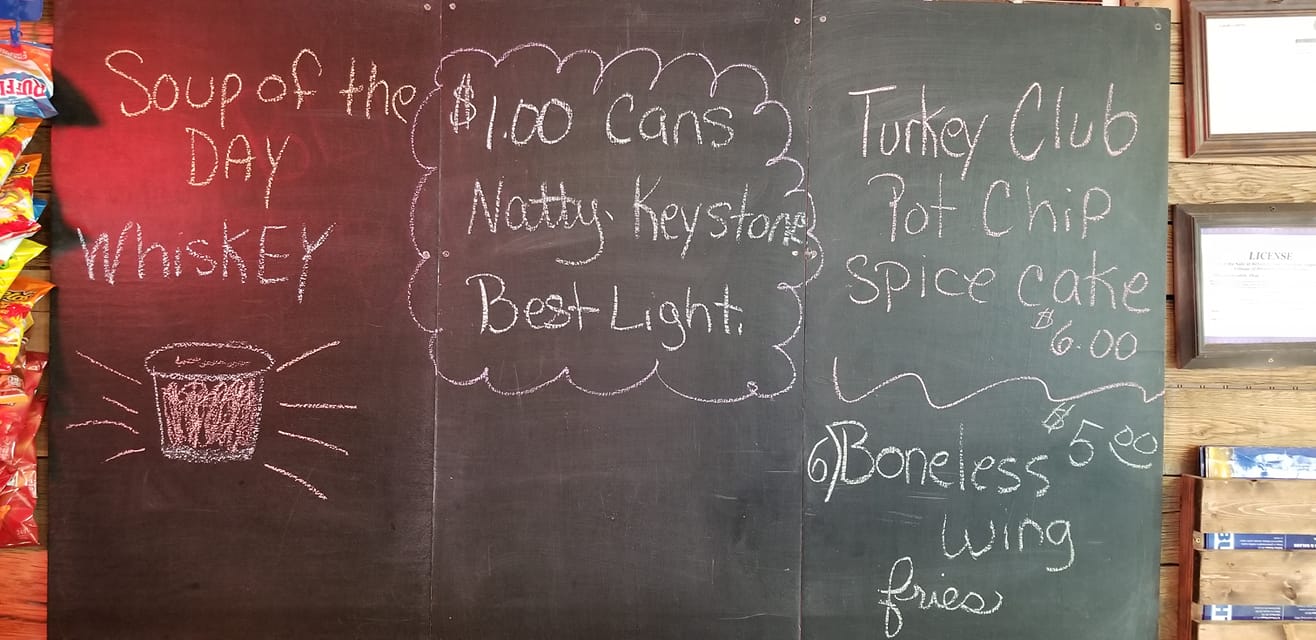 Soup of the
DAY
WhisKEY
$1.00 Cans
Natty. Keystone
Best Light.
Turkey Club
Pot Chip
Spice cake
$6.00
$5.00
6) Boneless
wing
fries
LICENSE